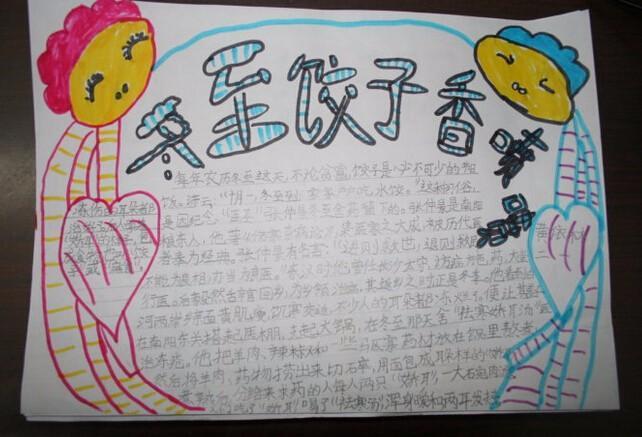 冬至饺子香
每年农历冬至这天,不论贫富,饺子是必不可少的
饭。谚云:"十月一,冬至到,家家户户吃水饺。"这种习俗,
是因纪念"医圣"张仲景冬至舍药留下的。张仲景是南阳
人,他著《伤寒杂病论》,集医家之大成,被历代医
者奉为经典。张仲景有名言:"进则救世,退则救民;
不能为良相,亦当为良医。"东汉时他曾任长沙太守,访病施药,大堂
行医。后毅然辞官回乡,为乡邻治病。其返乡之时正是冬季。他看到白
河两岸乡亲面黄肌瘦,饥寒交迫,不少人的耳朵都冻烂了。便让其
在南阳东关搭起医棚,支起大锅,在冬至那天舍"祛寒娇耳汤"医
治冻疮。他把羊肉、辣椒和一些驱寒药材放在锅里熬煮,
然后将羊肉、药物捞出来切碎,用面包成耳朵样的"娇耳"
煮熟后,分给来求药的人每人两只"娇耳",一大碗肉汤
人们吃了"娇耳",喝了"祛寒汤",浑身暖和,两耳发